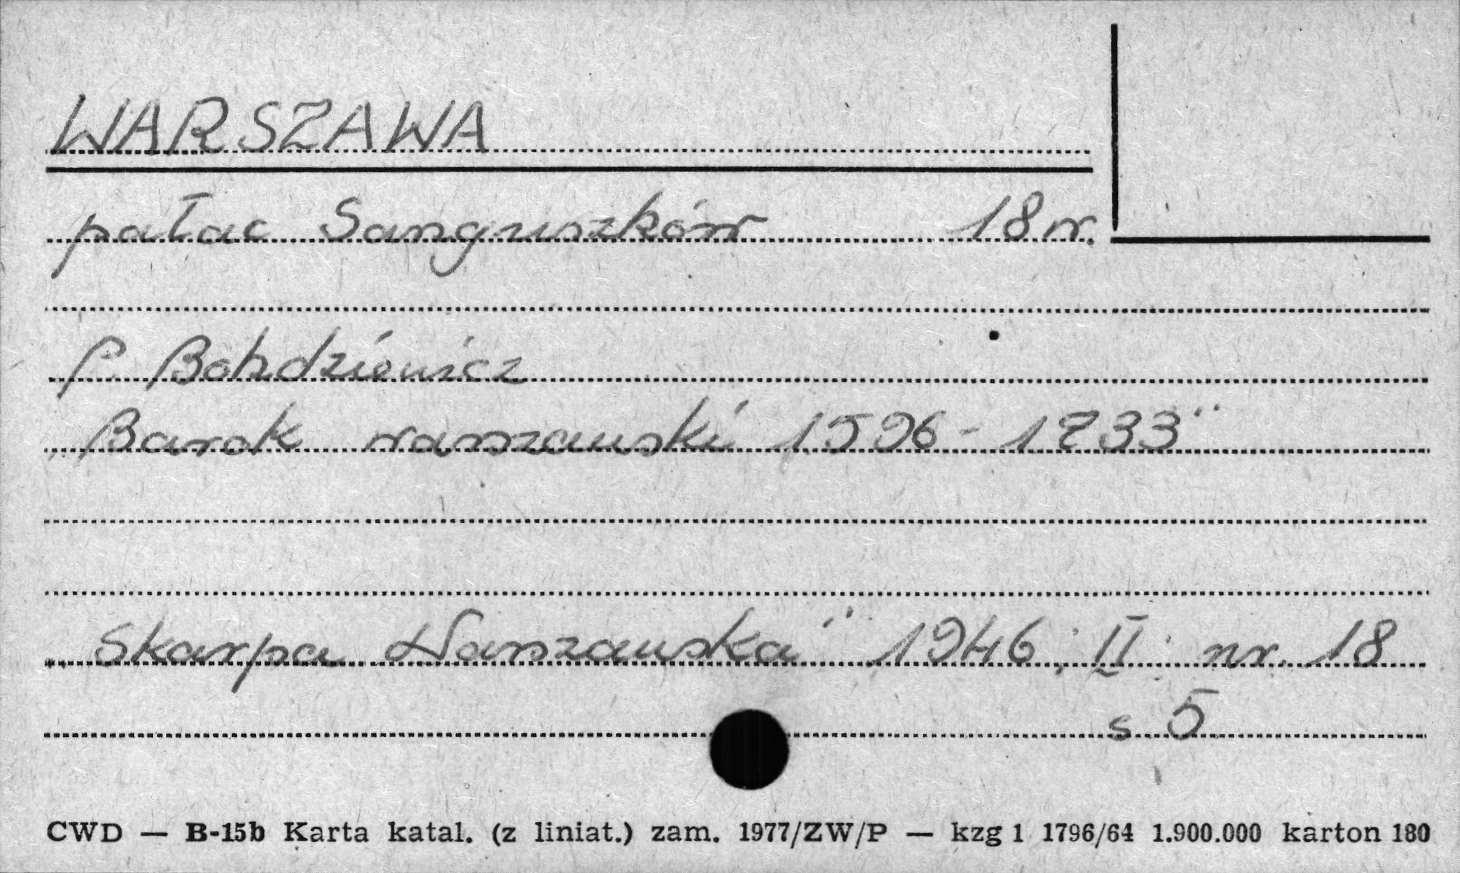 WARSZAWA
pałac Sanguszków 18 w.
P. Bohdziewicz
„Barok warszawski 1596-1733"
„Skarpa Warszawska" 1946; II; nr. 18
s 5
CWD — B-15b Karta katal. (z liniat.) zam. 1977/ZW/P — kzg 1 1796/64 1.900.000 karton 180